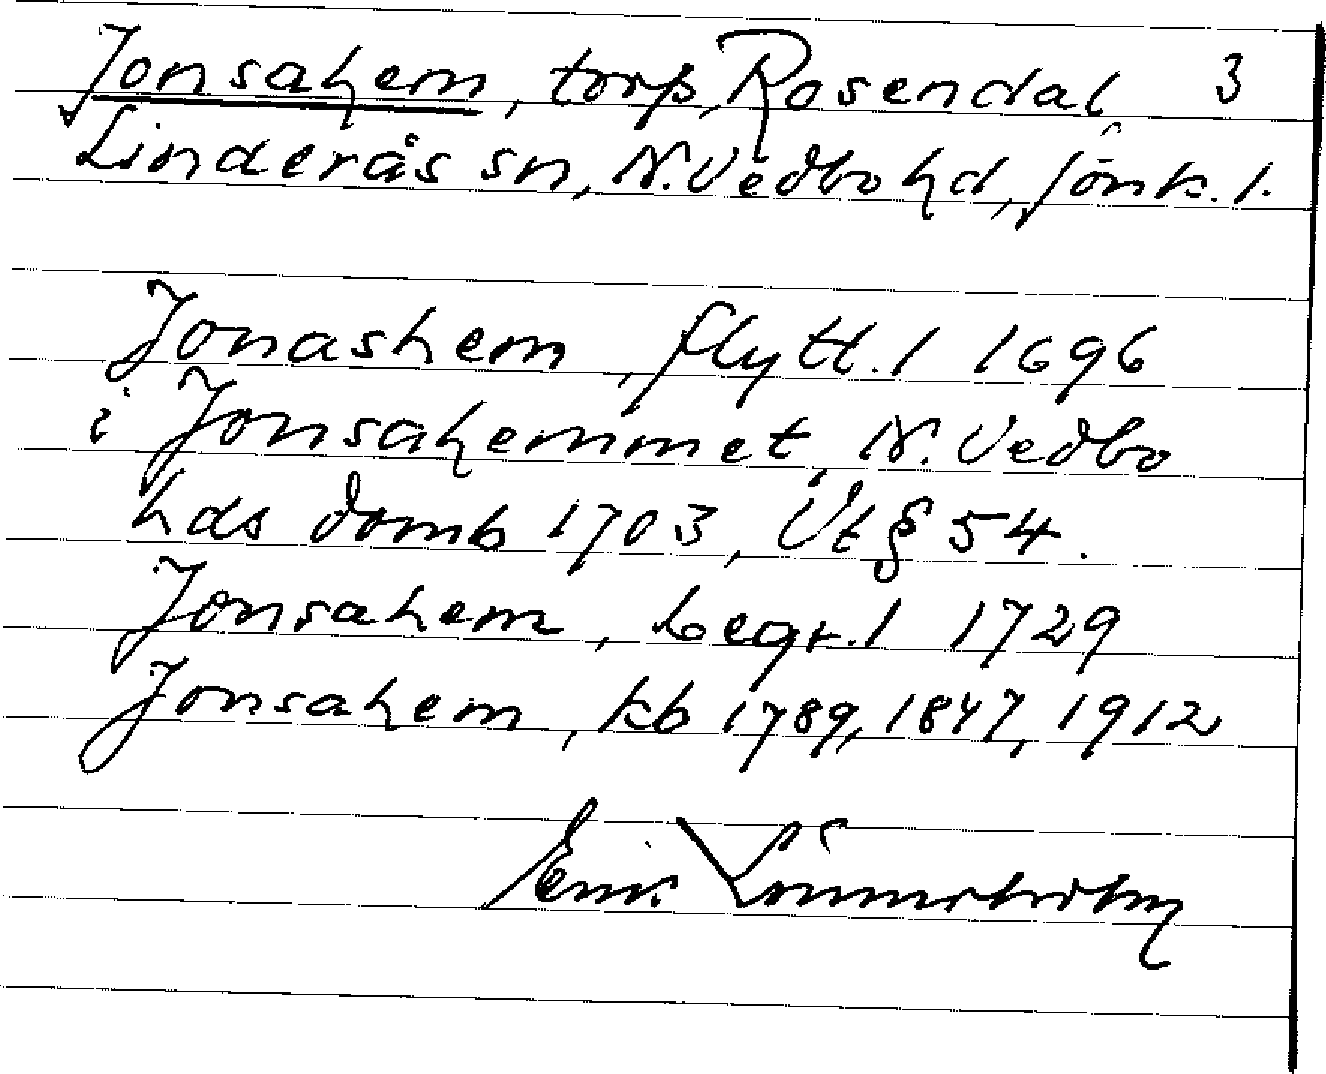 Jonsahem, torp, Rosendal 3
Linderås sn, N. Vedbo hd, Jönk. l.
Jonashem, flyttl. 1696
i Jonsahemmet, N. Vedbo
hds domb 1703, Vt § 54.
Jonsahem, begr.l 1729
Jonsahem, kb 1789, 1847, 1912